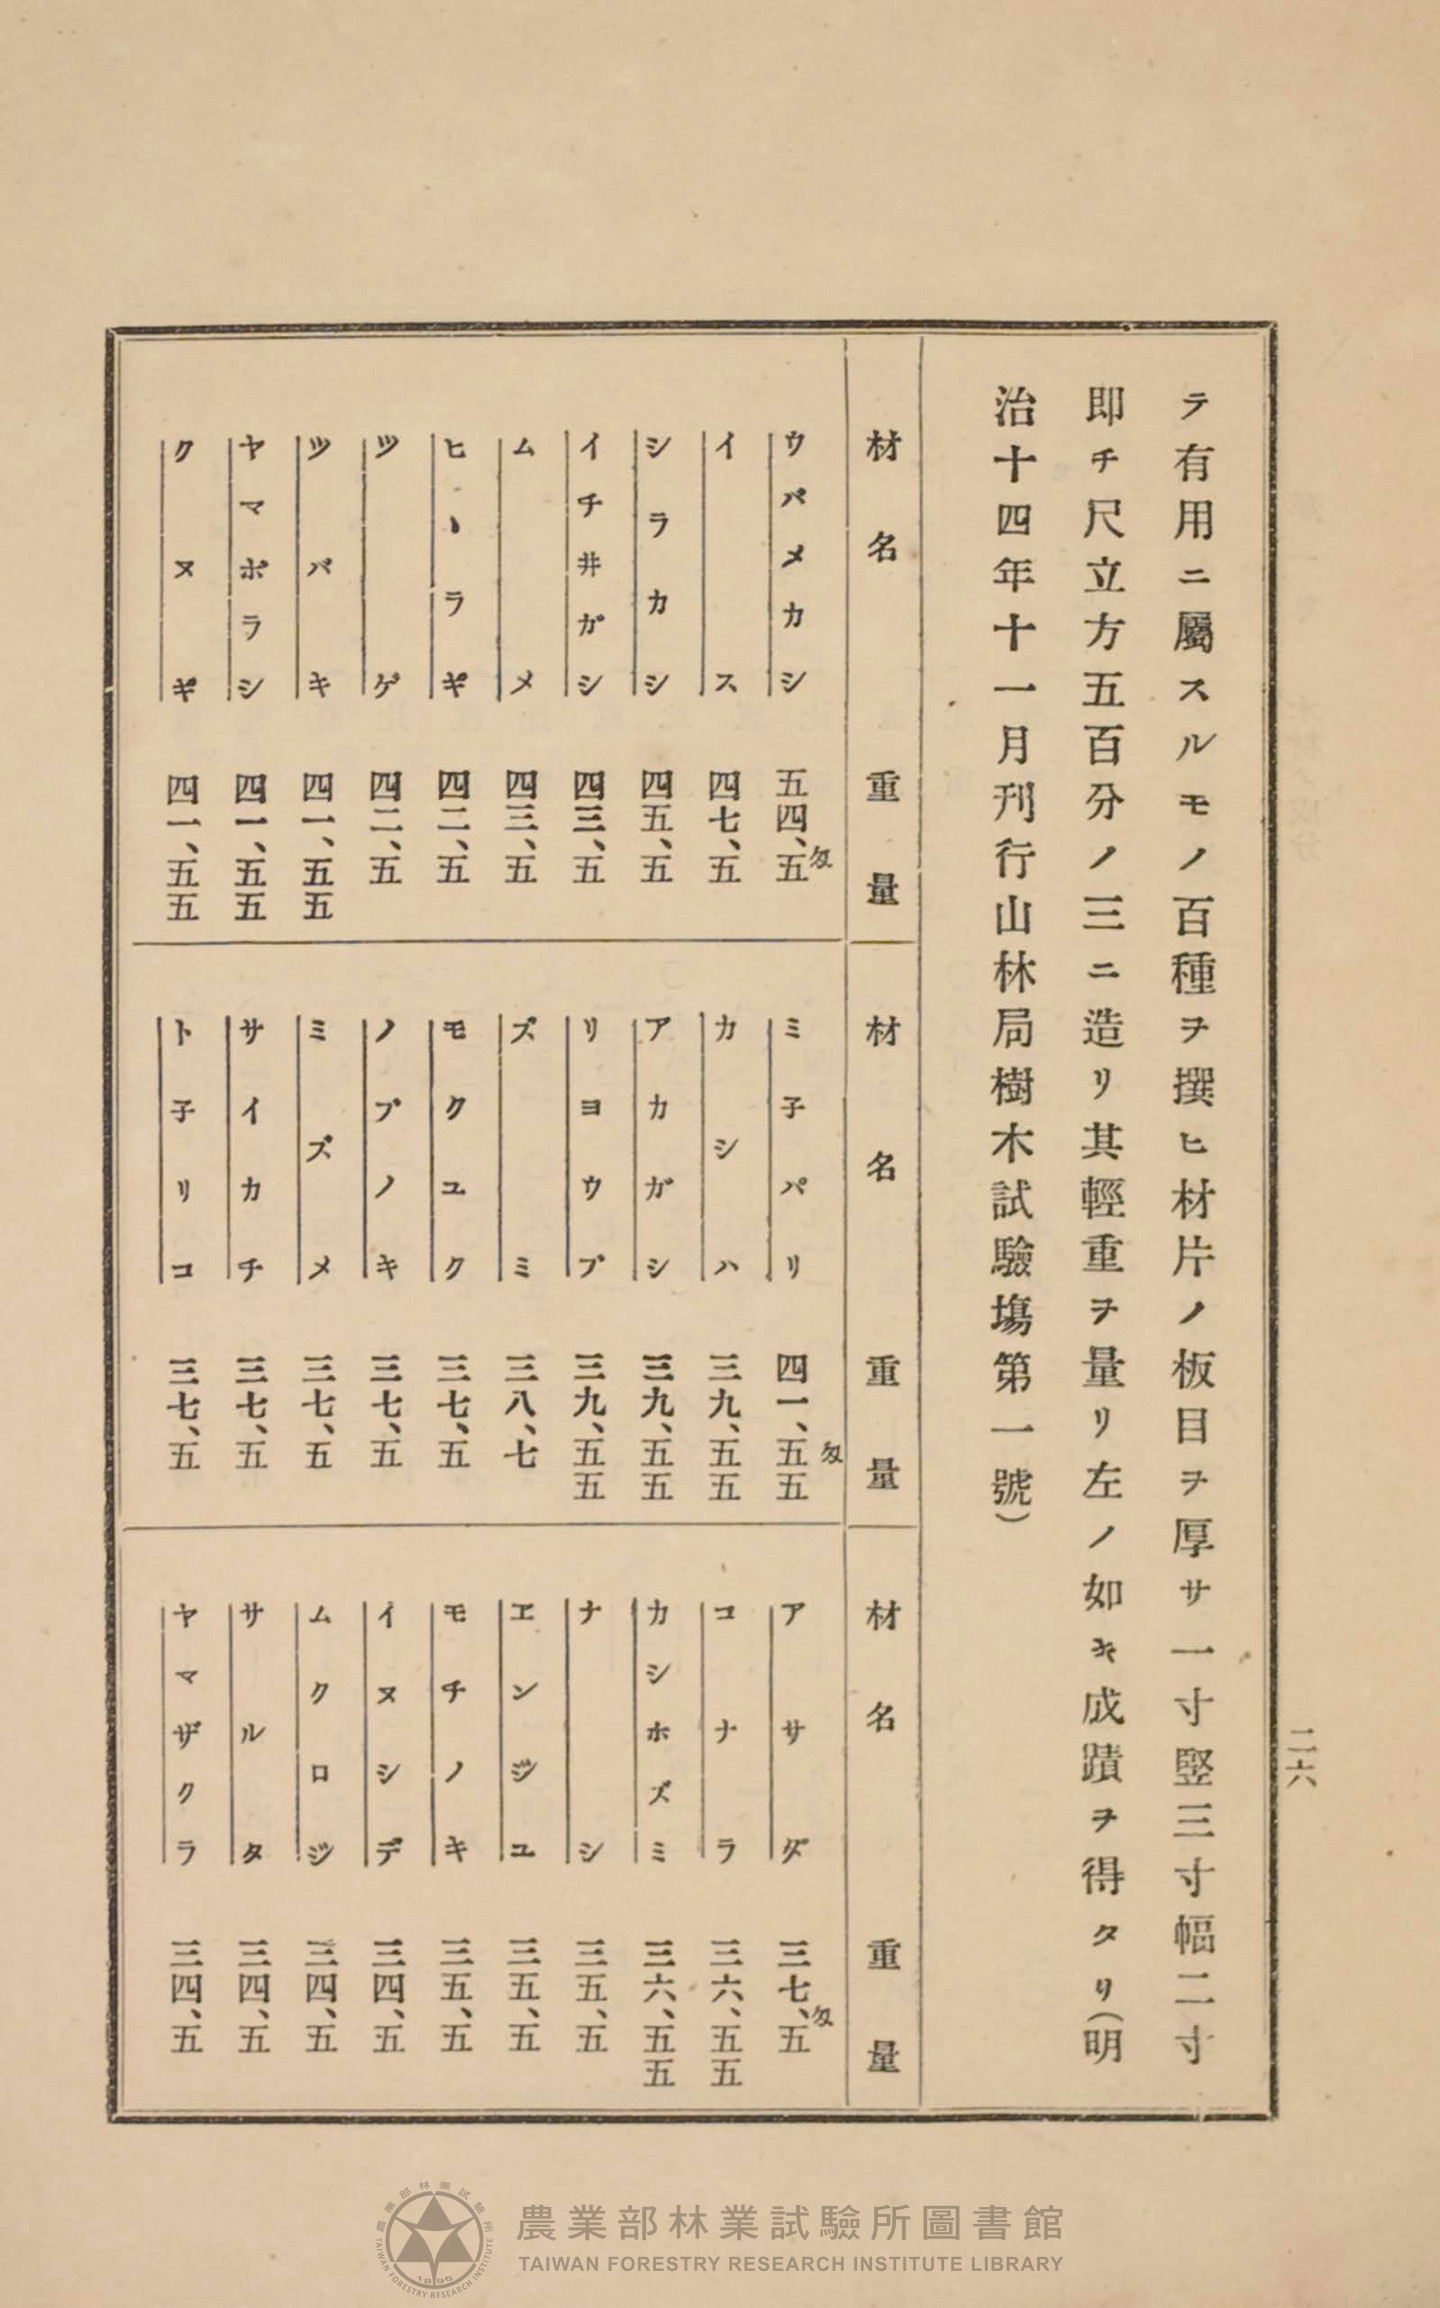 二六
テ有用ニ屬スルモノ百種ヲ撰ヒ材片ノ板目ヲ厚サ一寸竪三寸幅二寸
即チ尺立方五百分ノ三ニ造リ其輕重ヲ量リ左ノ如キ成蹟ヲ得タリ(明
治十四年十一月刊行山林局樹木試驗塲第一號)
材名 重量
ウバメカシ 五四、五匁
イス 四七、五
シラカシ 四五、五
イチ井ガシ 四三、五
ムメ 四三、五
ヒヽラギ 四二、五
ツゲ 四二、五
ツバキ 四一、五五
ヤマボラシ 四一、五五
クヌギ 四一、五五
材名 重量
ミ子バリ 四一、五五匁
カシハ 三九、五五
アカガシ 三九、五五
リヨウブ 三九、五五
ズミ 三八、七
モクユク 三七、五
ノブノキ 三七、五
ミズメ 三七、五
サイカチ 三七、五
ト子リコ 三七、五
材名 重量
アサダ 三七、五匁
コナラ 三六、五五
カシホズミ 三六、五五
ナシ 三五、五
エンジユ 三五、五
モチノキ 三五、五
イヌシデ 三四、五
ムクロジ 三四、五
サルタ 三四、五
ヤマザクラ 三四、五
農業部林業試驗所圖書館
TAIWAN FORESTRY RESEARCH INSTITUTE LIBRARY
農業部林業試驗所
TAIWAN FORESTRY RESEARCH INSTITUTE
1896